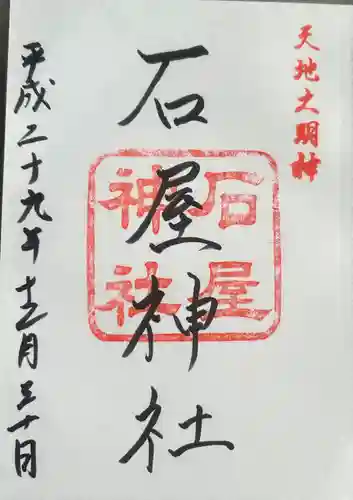 天地之明神
石屋神社
石屋
神社
平成二十九年十二月三十日